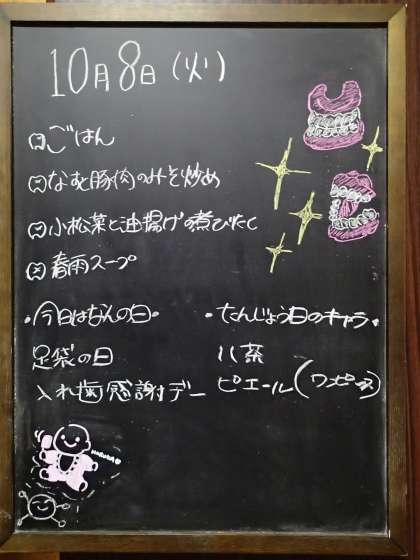 10月8日(火)
ごはん
なすと豚肉のみそ炒め
小松菜と油揚げの煮びたし
春雨スープ
・今日はなんの日・
足袋の日
入れ歯感謝デー
・たんじょう日のキャラ・
八茶
ピエール(ワンピース)
HARUKA